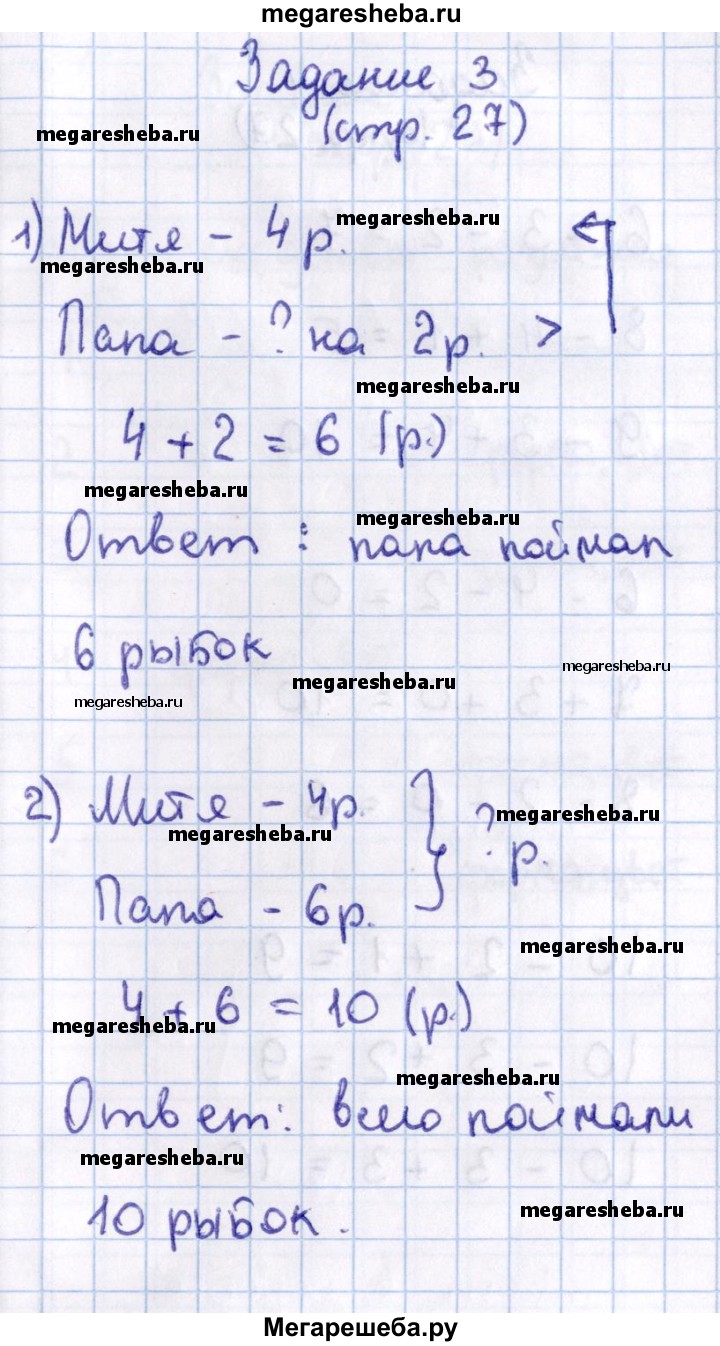 megaresheba.ru
Задание 3
megaresheba.ru
(стр. 27)
megaresheba.ru
1) Митя - 4 р.
megaresheba.ru
Папа - ? на 2 р. >
megaresheba.ru
4 + 2 = 6 (р.)
megaresheba.ru
megaresheba.ru
Ответ : папа поймал
6 рыбок
megaresheba.ru
megaresheba.ru
megaresheba.ru
2) Митя - 4р. } ? р.
megaresheba.ru
megaresheba.ru
Папа - 6р.
megaresheba.ru
4 + 6 = 10 (р.)
megaresheba.ru
megaresheba.ru
Ответ: всего поймали
megaresheba.ru
10 рыбок.
megaresheba.ru
Мегарешеба.ру